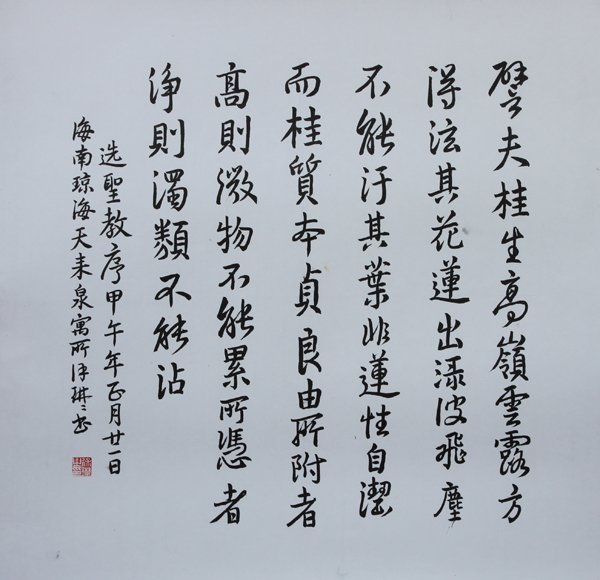 譬夫桂生高嶺雲露方
得泫其花蓮出淥波飛塵
不能汙其葉非蓮性自潔
而桂質本貞良由所附者
高則微物不能累所憑者
淨則濁類不能沾
选聖教序甲午年正月廿一日
海南琼海天来泉寓所